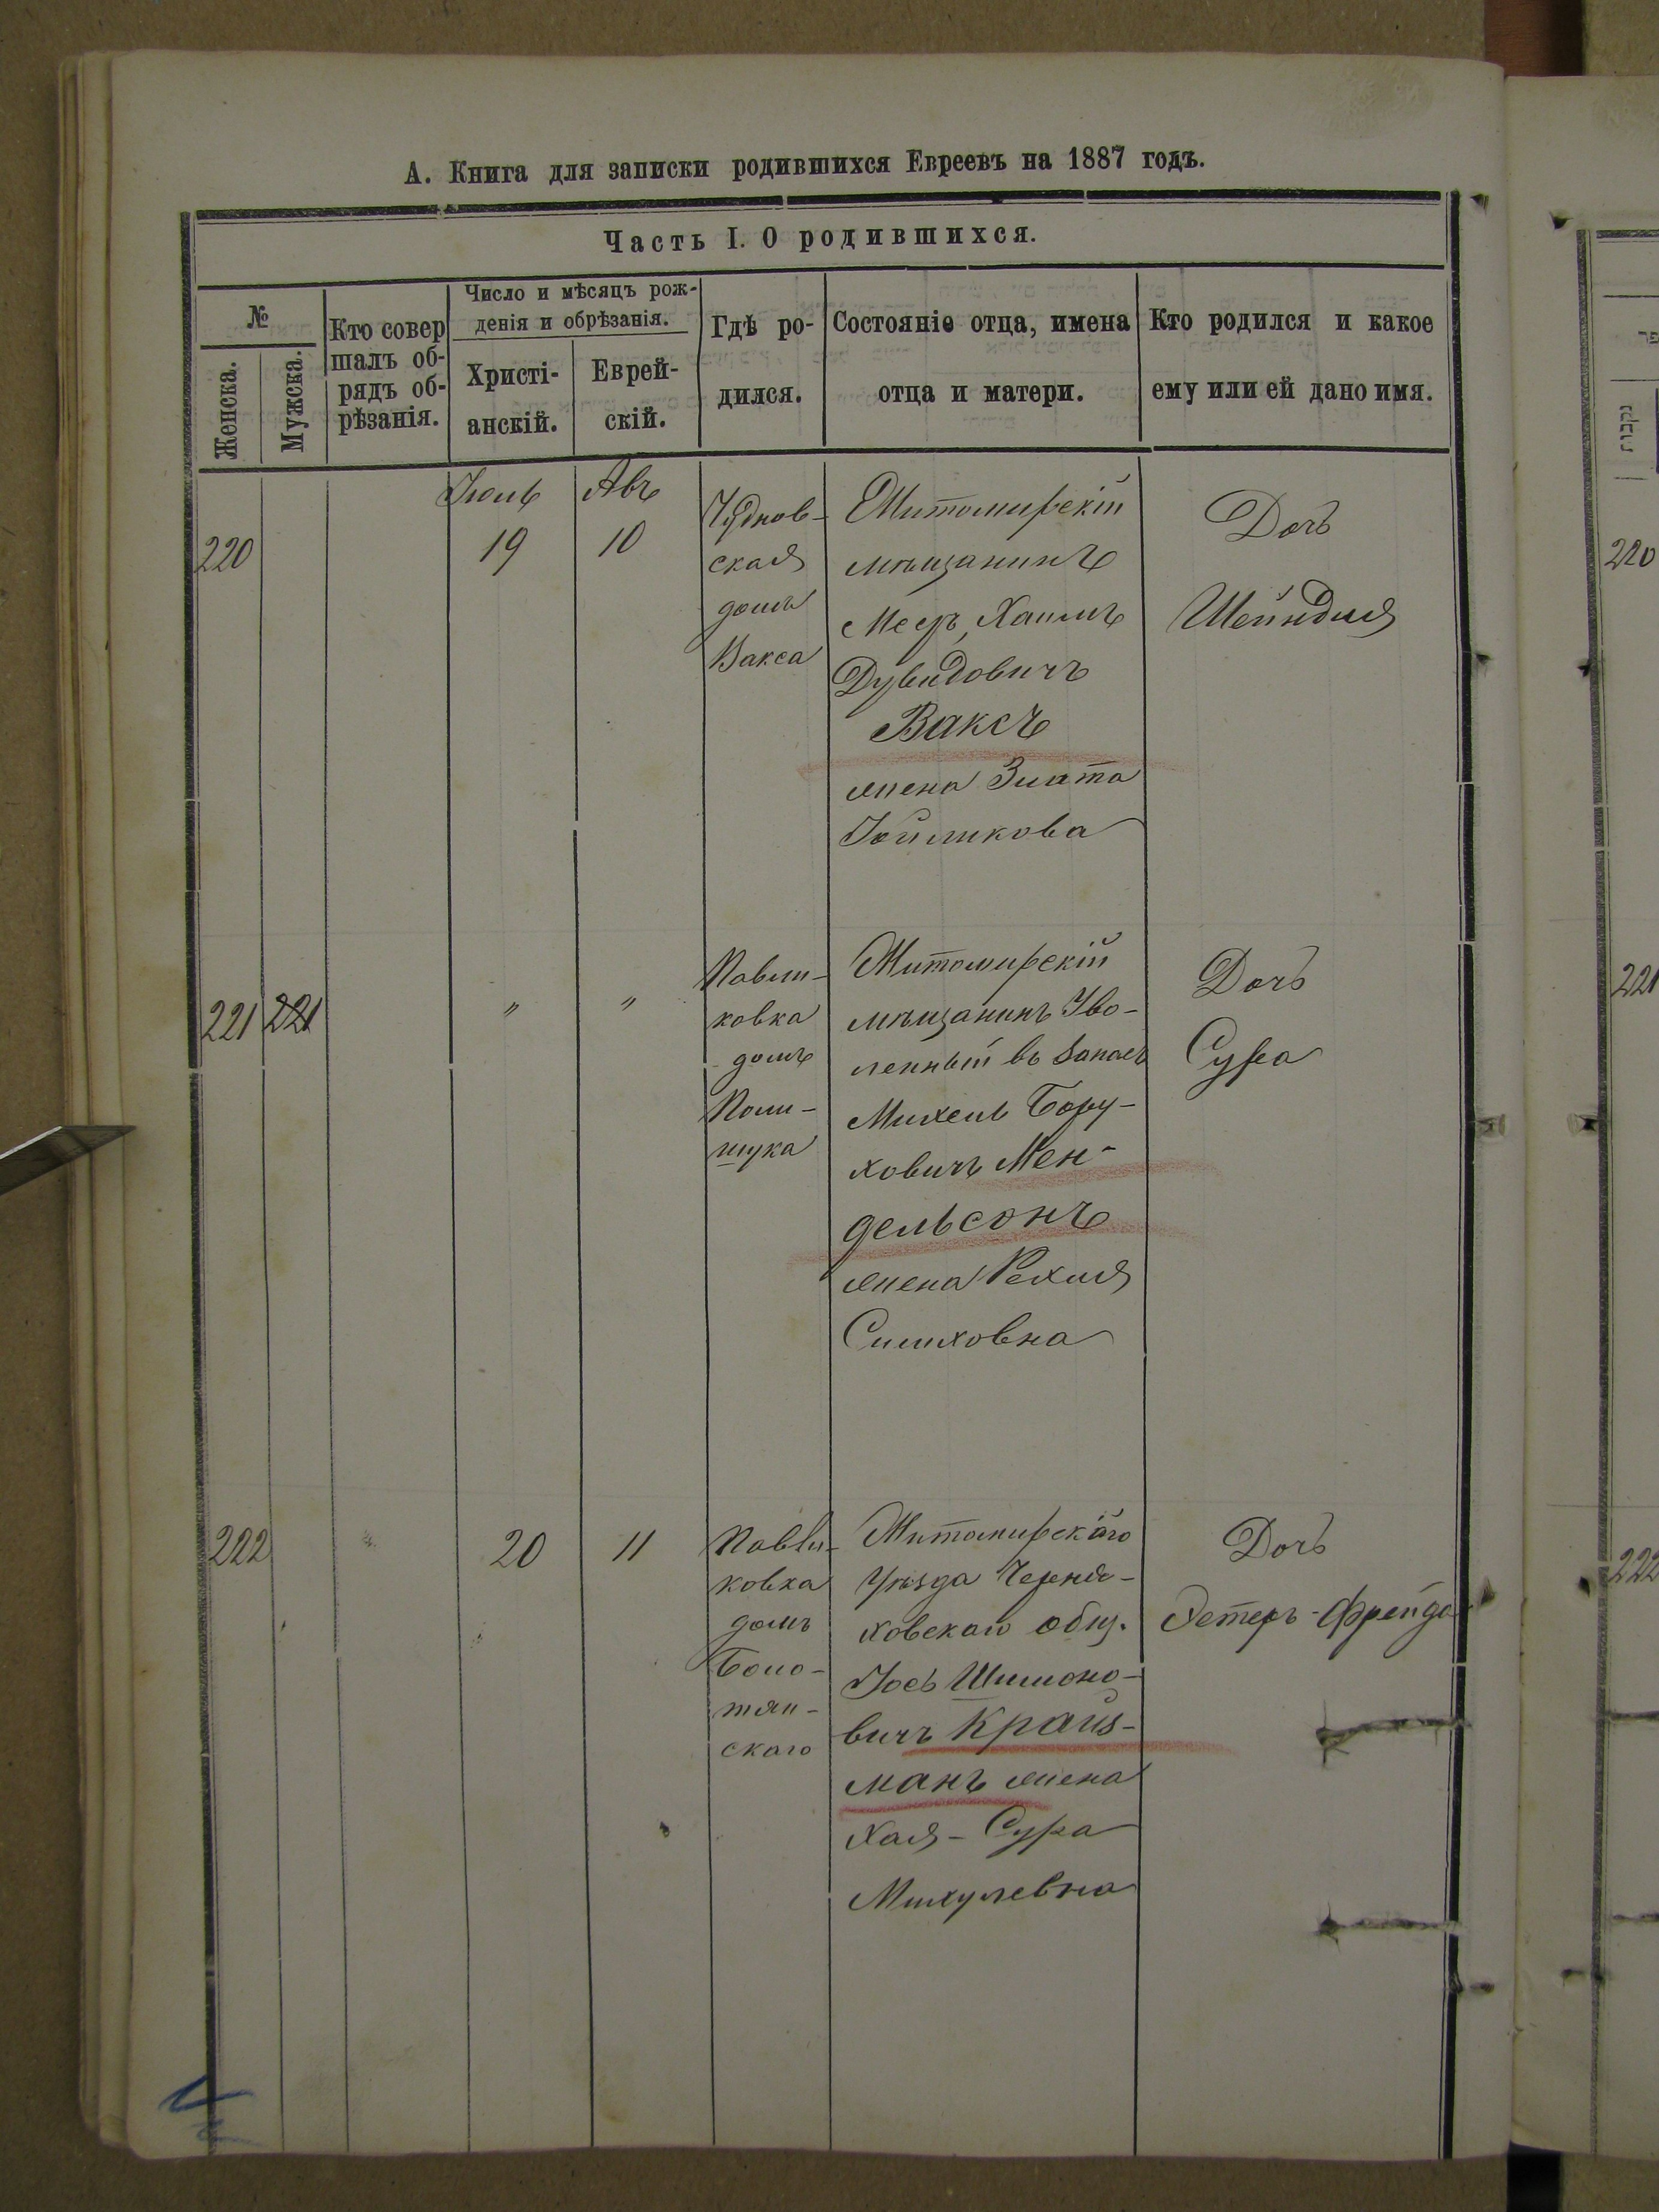 А. Книга для записки родившихся Евреевъ на 1887 годъ.
Часть I. О родившихся.
№
Женска.
Мужска.
Кто совер
шалъ об-
рядъ об-
рѣзанія.
Число и мѣсяцъ рож-
денія и обрѣзанія.
Христі-
анскій.
Еврей-
скій.
Гдѣ ро-
дился.
Состояніе отца, имена
отца и матери.
Кто родился и какое
ему или ей дано имя.
220
Іюль
19
Авъ
10
Чуднов-
ская
домъ
Вакса
Житомирскій
мѣщанинъ
Мееръ, Хаимъ
Дувидовичъ
Ваксъ
жена Злата
Іойликова
Дочь
Шейндля
221 221
" "
Павли-
ковка
домъ
Поли-
щука
Житомирскій
мѣщанинъ Уво-
ленный въ Запасъ
Михель Бору-
ховичъ Мен-
дельсонъ
жена Рехля
Симховна
Дочь
Сура
222
20
11
Павли-
ковка
домъ
Боло-
тян-
скаго
Житомирскаго
Уѣзда Черня-
ховскаго общ.
Іось Шимоно-
вичъ Крайз-
манъ жена
Хая-Сура
Михулевна
Дочь
Эстеръ-Фрейда
220
221
222